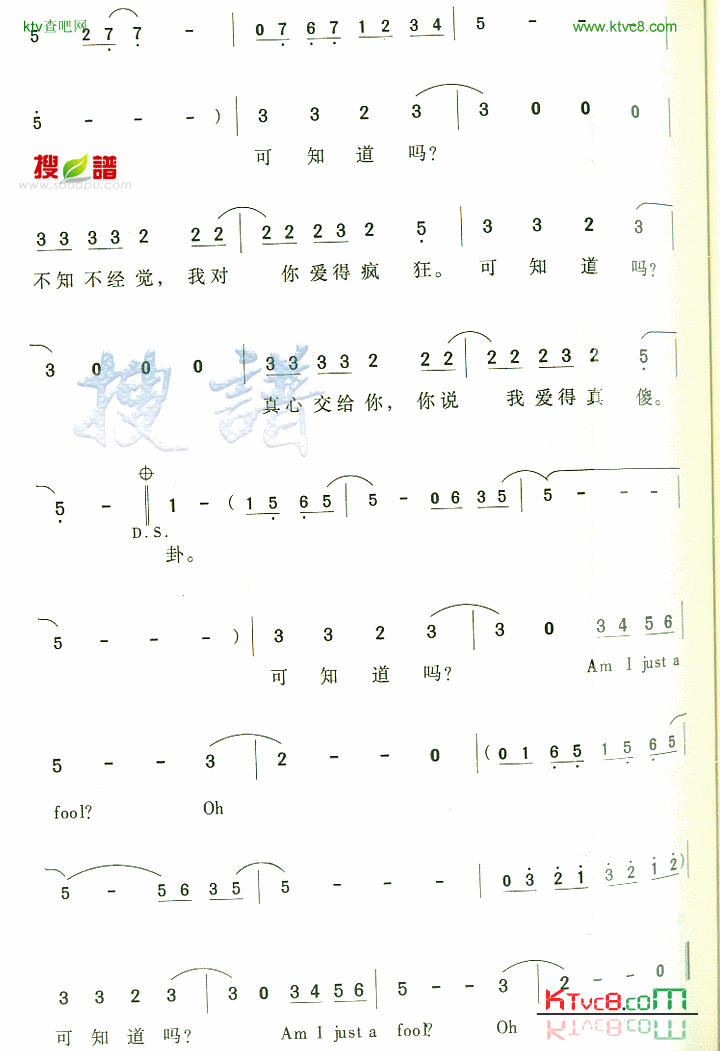 ktv查吧网 www.ktvc8.com
5 2 7 7 - | 0 7 6 7 1 2 3 4 | 5 - - -
5 - - - ) | 3 3 2 3 | 3 0 0 0 |
可 知 道 吗?
搜谱
www.sooopu.com
3 3 3 3 2 2 2 | 2 2 2 3 2 5 | 3 3 2 3
不知不经觉, 我对 你爱得疯 狂。 可 知 道 吗?
3 0 0 0 | 3 3 3 3 2 2 2 | 2 2 2 3 2 5 |
搜谱
真心交给你, 你说 我爱得真 傻。
5 - || 1 - ( 1 5 6 5 | 5 - 0 6 3 5 | 5 - - - |
D.S.
卦。
5 - - - ) | 3 3 2 3 | 3 0 3 4 5 6 |
可 知 道 吗? Am I just a
5 - - 3 | 2 - - 0 | ( 0 1 6 5 1 5 6 5 |
fool? Oh
5 - 5 6 3 5 | 5 - - - | 0 3 2 1 3 2 1 2 )
3 3 2 3 | 3 0 3 4 5 6 | 5 - - 3 | 2 - - 0
可 知 道 吗? Am I just a fool? Oh
KTvc8.com